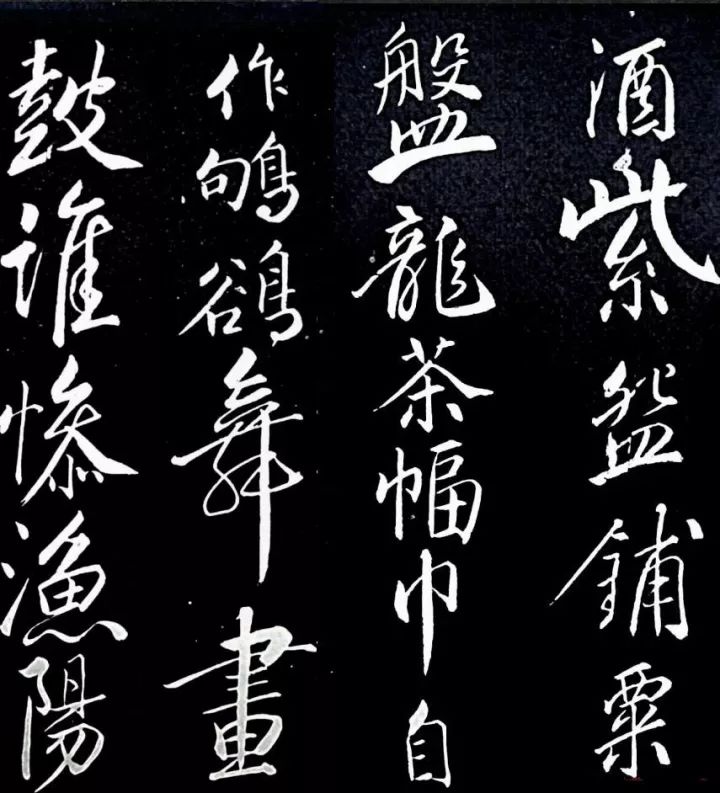 酒紫盌鋪粟
盤龍茶幅巾自
作鴝鵒舞畫
皷誰慘漁陽